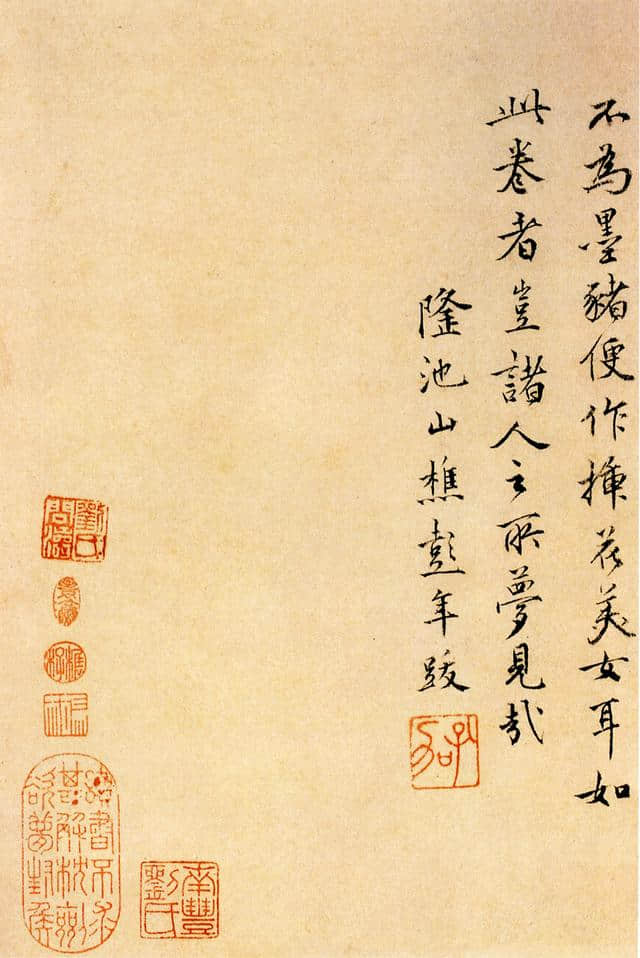 不為墨豬便作插花美女耳如
此卷者豈諸人之所夢見哉
隆池山樵彭年跋